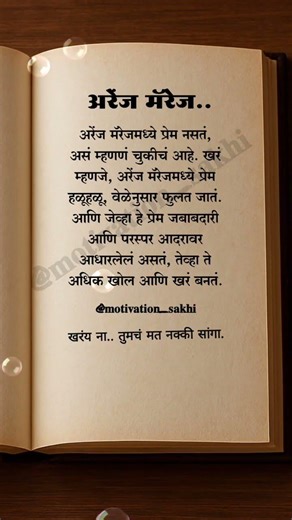 अरेंज मॅरेज..
अरेंज मॅरेजमध्ये प्रेम नसतं,
असं म्हणणं चुकीचं आहे. खरं
म्हणजे, अरेंज मॅरेजमध्ये प्रेम
हळूहळू, वेळेनुसार फुलत जातं.
आणि जेव्हा हे प्रेम जबाबदारी
आणि परस्पर आदरावर
आधारलेलं असतं, तेव्हा ते
अधिक खोल आणि खरं बनतं.
@motivation_sakhi
खरंय ना.. तुमचं मत नक्की सांगा.
@motivation_sakhi